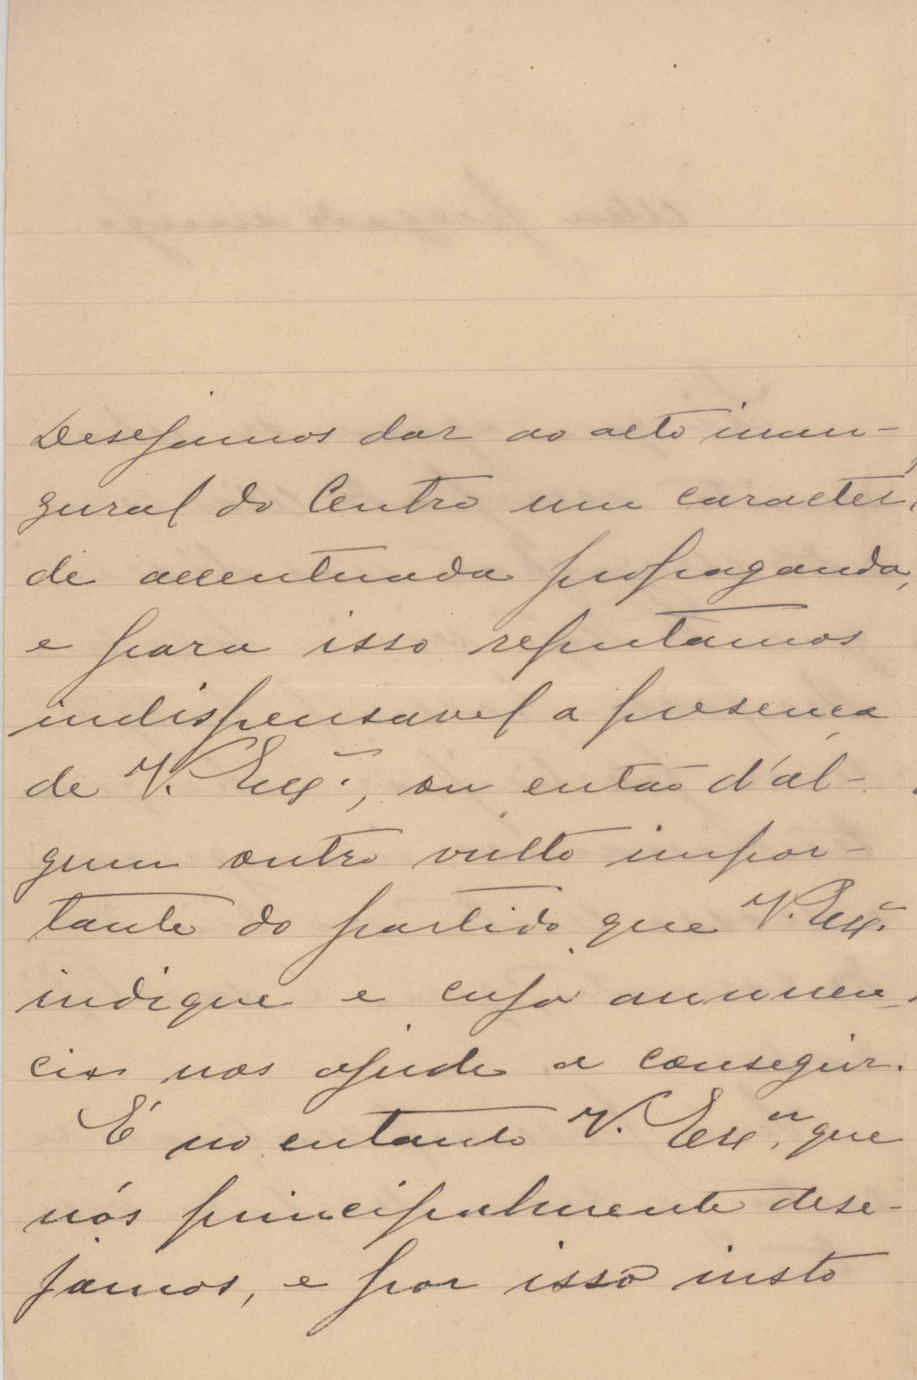 Desejamos dar ao acto inau-
gural do Centro um caracter
de accentuada propaganda,
e para isso reputamos
indispensavel a presença
de V. Exª., ou então d'al-
gum outro vulto impor-
tante do partido que V. Exª.
indique e cuja annuen-
cia nos ajude a conseguir.
É no entanto V. Exª. que
nós principalmente dese-
jamos, e por isso insto